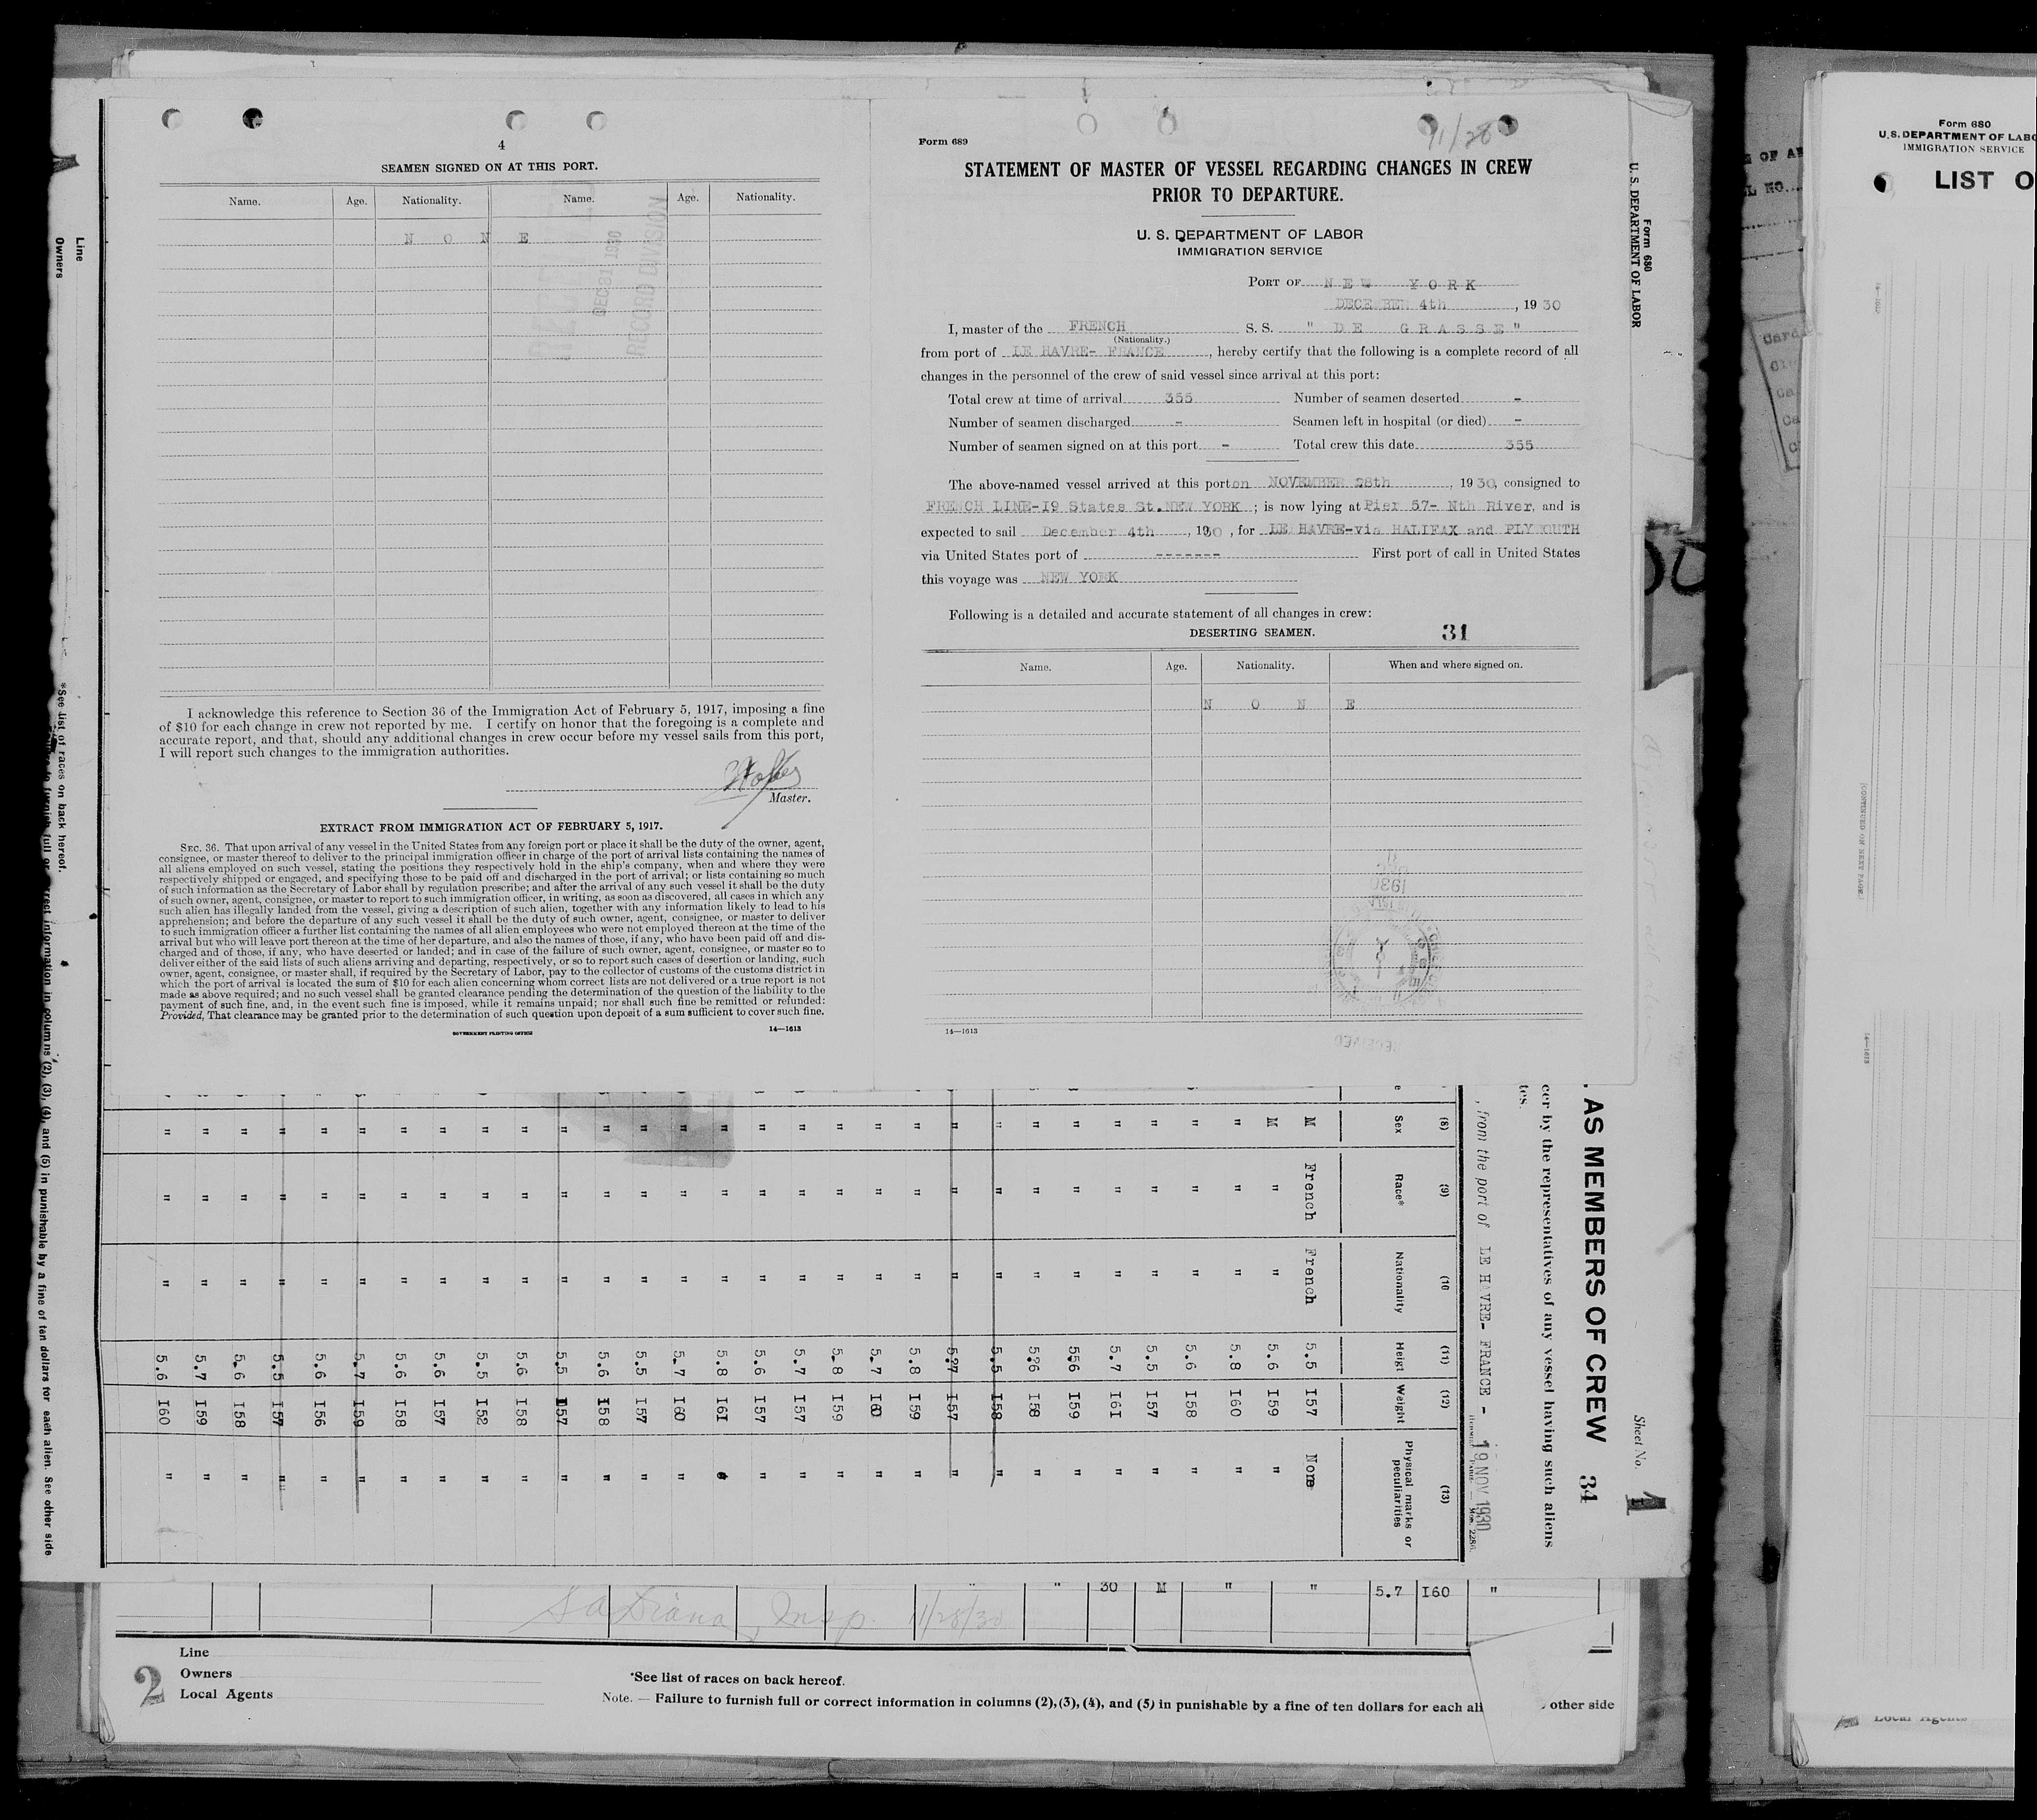 4
SEAMEN SIGNED ON AT THIS PORT.
Name. Age. Nationality. Name. Age. Nationality.
N O N E
DEC 31 1930
RECORD DIVISION
I acknowledge this reference to Section 36 of the Immigration Act of February 5, 1917, imposing a fine
of $10 for each change in crew not reported by me. I certify on honor that the foregoing is a complete and
accurate report, and that, should any additional changes in crew occur before my vessel sails from this port,
I will report such changes to the immigration authorities.
Master.
EXTRACT FROM IMMIGRATION ACT OF FEBRUARY 5, 1917.
SEC. 36. That upon arrival of any vessel in the United States from any foreign port or place it shall be the duty of the owner, agent,
consignee, or master thereof to deliver to the principal immigration officer in charge of the port of arrival lists containing the names of
all aliens employed on such vessel, stating the positions they respectively hold in the ship's company, when and where they were
respectively shipped or engaged, and specifying those to be paid off and discharged in the port of arrival; or lists containing so much
of such information as the Secretary of Labor shall by regulation prescribe; and after the arrival of any such vessel it shall be the duty
of such owner, agent, consignee, or master to report to such immigration officer, in writing, as soon as discovered, all cases in which any
such alien has illegally landed from the vessel, giving a description of such alien, together with any information likely to lead to his
apprehension; and before the departure of any such vessel it shall be the duty of such owner, agent, consignee, or master to deliver
to such immigration officer a further list containing the names of all alien employees who were not employed thereon at the time of the
arrival but who will leave port thereon at the time of her departure, and also the names of those, if any, who have been paid off and dis-
charged and of those, if any, who have deserted or landed; and in case of the failure of such owner, agent, consignee, or master so to
deliver either of the said lists of such aliens arriving and departing, respectively, or so to report such cases of desertion or landing, such
owner, agent, consignee, or master shall, if required by the Secretary of Labor, pay to the collector of customs of the customs district in
which the port of arrival is located the sum of $10 for each alien concerning whom correct lists are not delivered or a true report is not
made as above required; and no such vessel shall be granted clearance pending the determination of the question of the liability to the
payment of such fine, and, in the event such fine is imposed, while it remains unpaid; nor shall such fine be remitted or refunded:
Provided, That clearance may be granted prior to the determination of such question upon deposit of a sum sufficient to cover such fine.
GOVERNMENT PRINTING OFFICE 14—1613
11/28
Form 689
STATEMENT OF MASTER OF VESSEL REGARDING CHANGES IN CREW
PRIOR TO DEPARTURE.
U. S. DEPARTMENT OF LABOR
IMMIGRATION SERVICE
PORT OF NEW YORK
DECEMBER 4th, 1930
I, master of the FRENCH S. S. "DE GRASSE"
(Nationality.)
from port of LE HAVRE- FRANCE, hereby certify that the following is a complete record of all
changes in the personnel of the crew of said vessel since arrival at this port:
Total crew at time of arrival 355 Number of seamen deserted -
Number of seamen discharged - Seamen left in hospital (or died) -
Number of seamen signed on at this port - Total crew this date 355
The above-named vessel arrived at this port on NOVEMBER 28th, 1930, consigned to
FRENCH LINE-I9 States St.NEW YORK; is now lying at Pier 57- Nth River, and is
expected to sail December 4th, 1930, for LE HAVRE-via HALIFAX and PLYMOUTH
via United States port of ------- First port of call in United States
this voyage was NEW YORK
Following is a detailed and accurate statement of all changes in crew:
DESERTING SEAMEN. 31
Name. Age. Nationality. When and where signed on.
N O N E
1930
RECEIVED
14—1613
Form 680
U. S. DEPARTMENT OF LABOR
Sheet No. 1
AS MEMBERS OF CREW 34
cer by the representatives of any vessel having such aliens
tes.
, from the port of LE HAVRE- FRANCE - 19 NOV 1930
(8) (9) (10 (11) (12) (13)
Sex Race* Nationality Heigt Weight Physical marks or peculiarities
M French French 5.5 I57 None
M " " 5.6 I59 "
" " " 5.8 I60 "
" " " 5.6 I58 "
" " " 5.5 I57 "
" " " 5.7 I61 "
" " " 556 I59 "
" " " 526 I58 "
" " " 5.5 I58 "
" " " 527 I57 "
" " " 5.8 I59 "
" " " 5.7 I60 "
" " " 5.8 I59 "
" " " 5.7 I57 "
" " " 5.6 I57 "
" " " 5.8 I61
" " " 5.7 I60 "
" " " 5.5 I57 "
" " " 5.6 I58 "
" " " 5.5 I57 "
" " " 5.6 I58 "
" " " 5.5 I52 "
" " " 5.6 I57 "
" " " 5.6 I58 "
" " " 5.7 I59 "
" " " 5.6 I56 "
" " " 5.5 I57 "
" " " 5.6 I58 "
" " " 5.7 I59 "
" " " 5.6 I60 "
Line
Owners
*See list of races on back hereof.
furnish full or correct information in columns (2), (3), (4), and (5) in punishable by a fine of ten dollars for each alien. See other side
" " 30 M " " 5.7 I60 "
Insp. 11/28/30
2
Line
Owners
Local Agents
*See list of races on back hereof.
Note. — Failure to furnish full or correct information in columns (2),(3), (4), and (5) in punishable by a fine of ten dollars for each ali
other side
Form 680
U.S. DEPARTMENT OF LABO
IMMIGRATION SERVICE
LIST O
(CONTINUED ON NEXT PAGE.)
14—1613
Local Agents